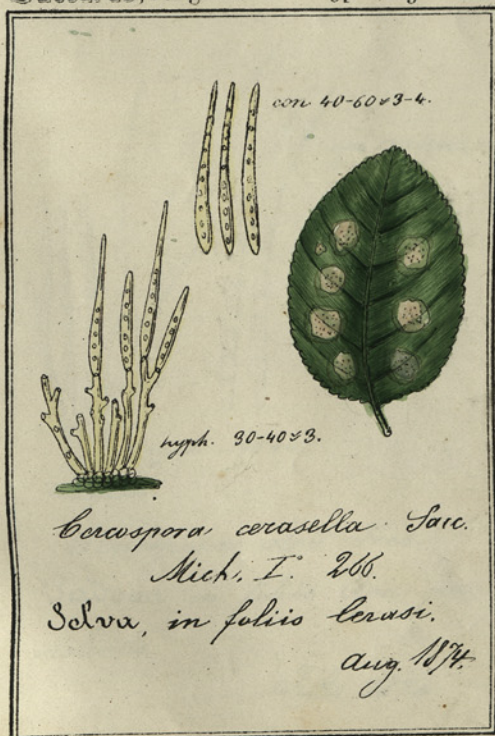 con 40-60≈3-4.
hyph. 30-40≈3.
Cercospora cerasella Sacc.
Mich. I. 266.
Selva, in foliis Cerasi.
Aug. 1874.